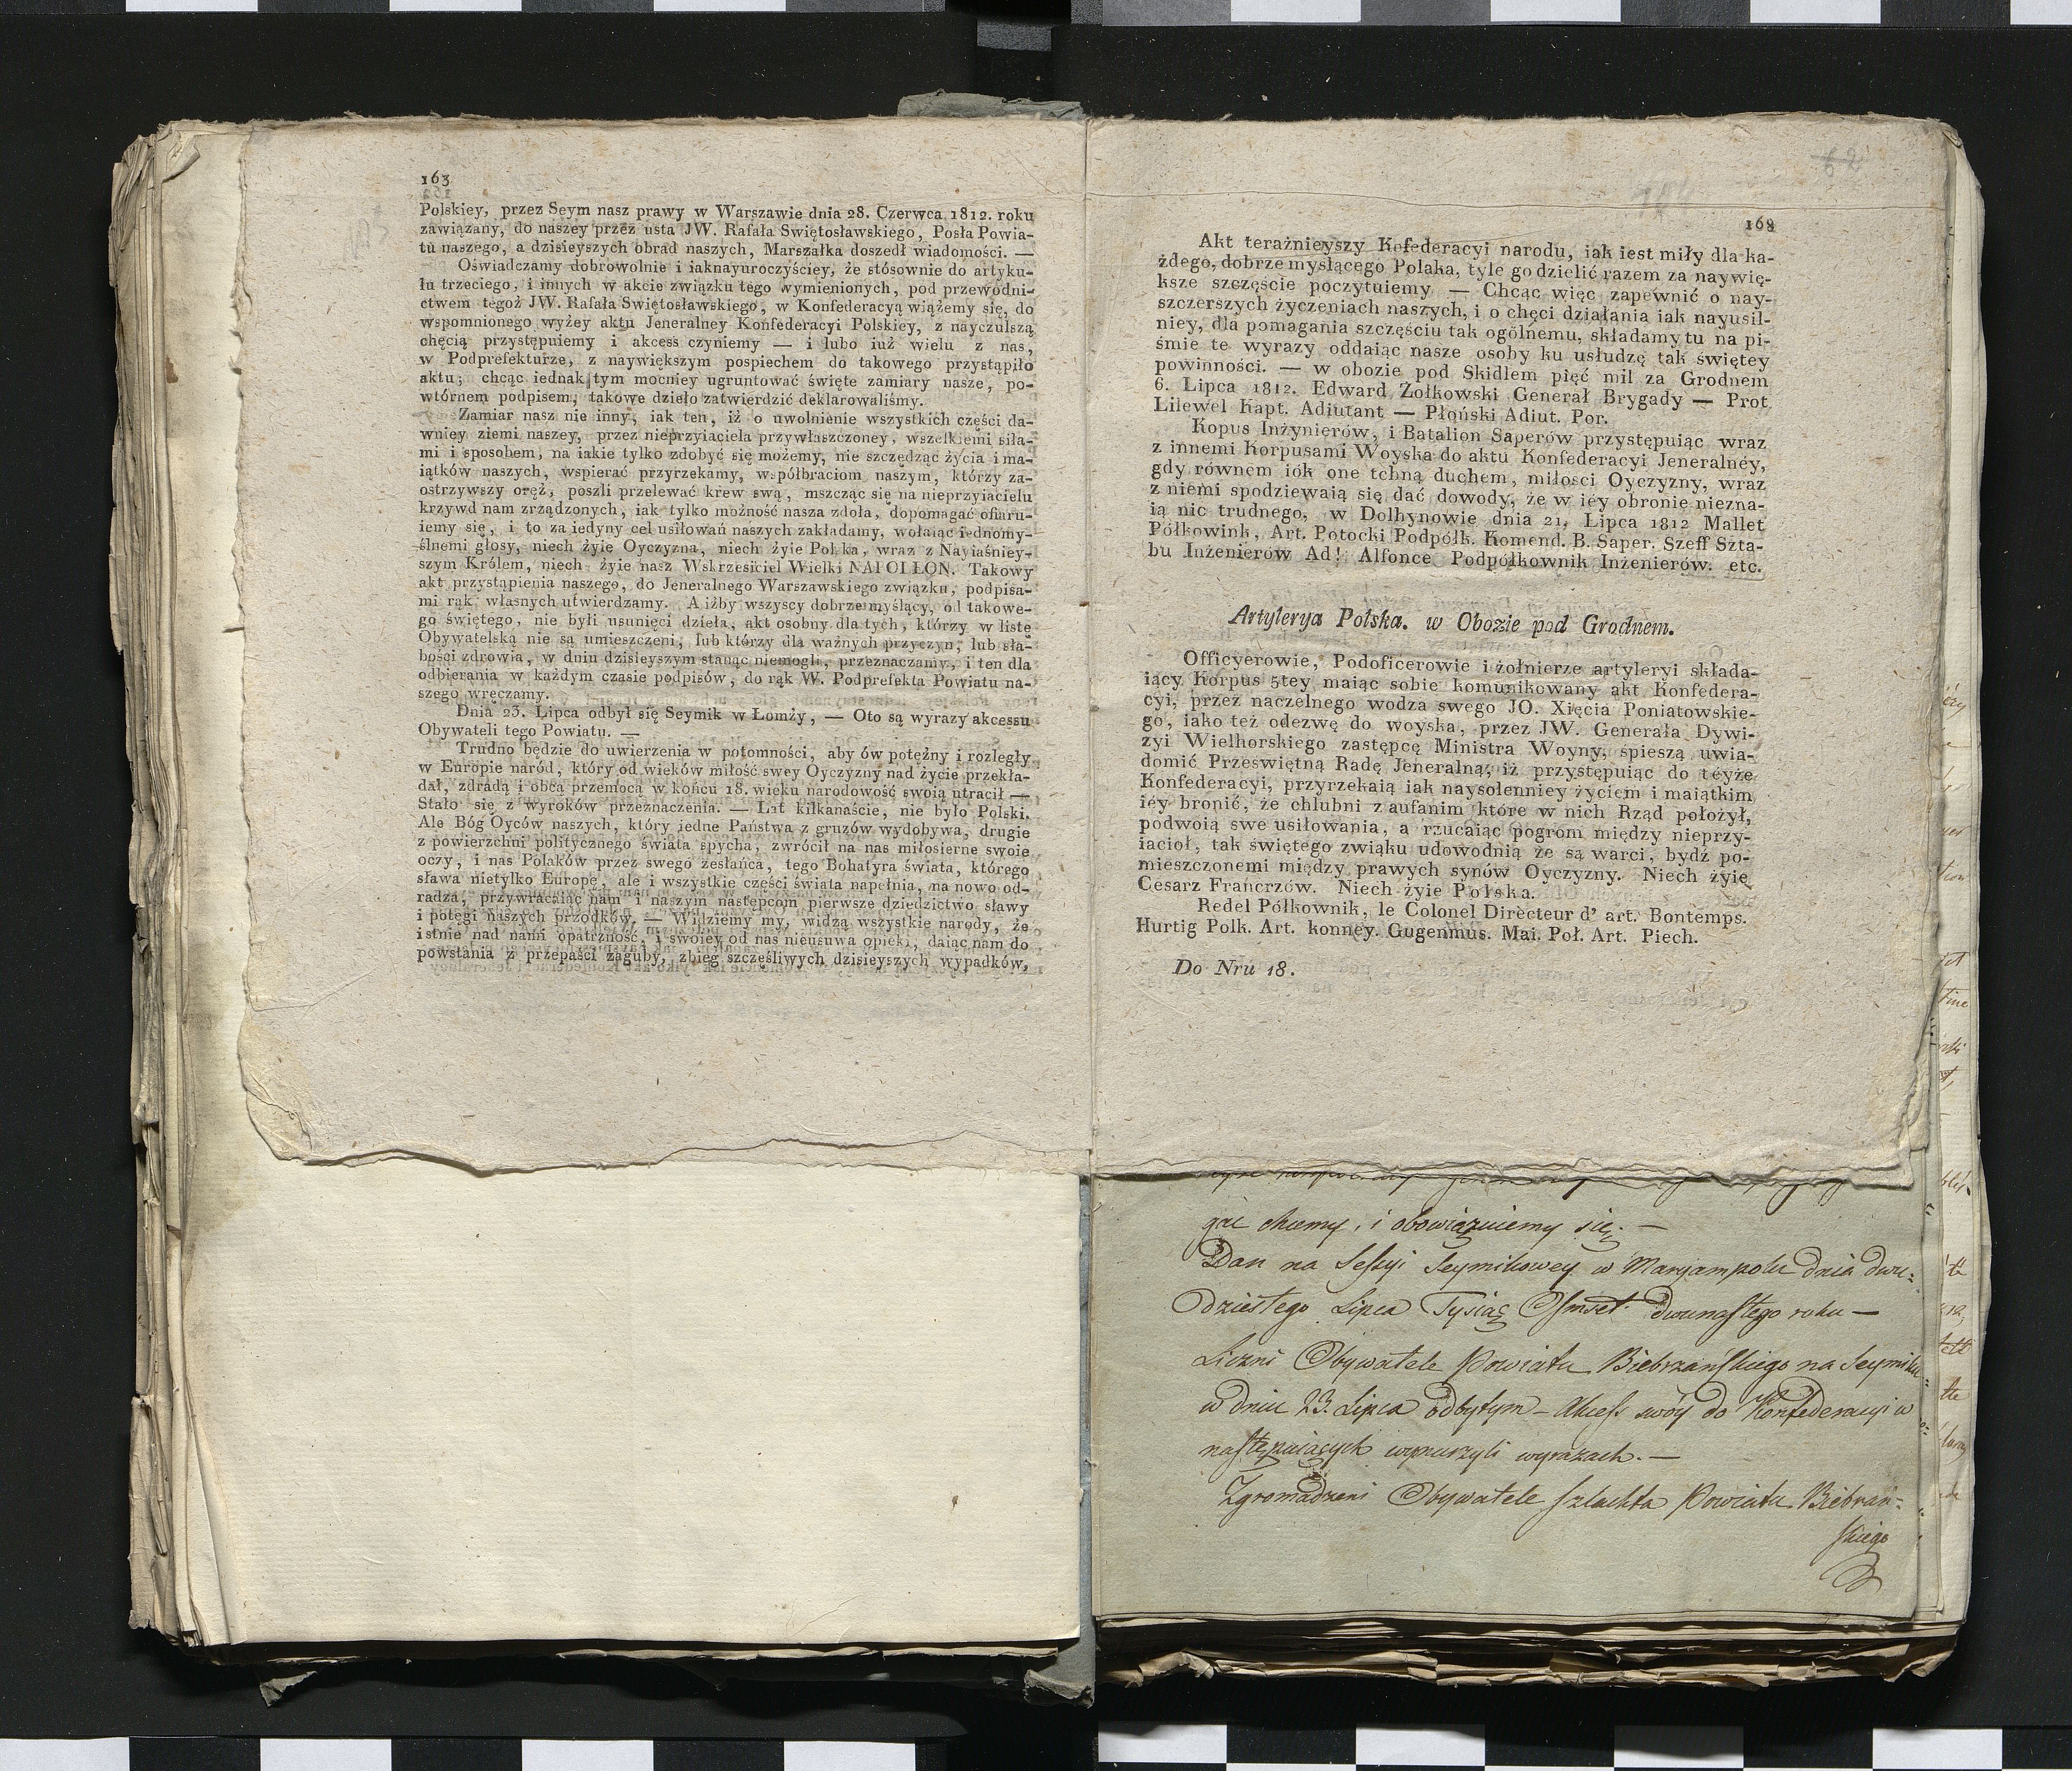 163
Polskiey, przez Seym nasz prawy w Warszawie dnia 28. Czerwca 1812. roku
zawiązany, do naszey przez usta JW. Rafała Swiętosławskiego, Posła Powia-
tu naszego, a dzisieyszych obrad naszych, Marszałka doszedł wiadomości. —
Oświadczamy dobrowolnie i iaknayuroczyściey, że stósownie do artyku-
łu trzeciego, i innych w akcie związku tego wymienionych, pod przewodni-
ctwem tegoż JW. Rafała Swiętosławskiego, w Konfederacyą wiążemy się, do
wspomnionego wyżey aktu Jeneralney Konfederacyi Polskiey, z nayczulszą
chęcią przystępuiemy i akcess czyniemy — i lubo iuż wielu z nas,
w Podprefekturze, z naywiększym pospiechem do takowego przystąpiło
aktu; chcąc iednak tym mocniey ugruntować święte zamiary nasze, po-
wtórnem podpisem, takowe dzieło zatwierdzić deklarowaliśmy.
Zamiar nasz nie inny, iak ten, iż o uwolnienie wszystkich części da-
wniey ziemi naszey, przez nieprzyiaciela przywłaszczoney, wszelkiemi siła-
mi i sposobem, na iakie tylko zdobyć się możemy, nie szczędząc życia i ma-
iątków naszych, wspierać przyrzekamy, współbraciom naszym, którzy za-
ostrzywszy oręż, poszli przelewać krew swą, mszcząc się na nieprzyiacielu
krzywd nam zrządzonych, iak tylko możność nasza zdoła, dopomagać ofiaru-
iemy się, i to za iedyny cel usiłowań naszych zakładamy, wołaiąc iednomy-
ślnemi głosy, niech żyie Oyczyzna, niech żyie Polska, wraz z Nayiaśniey-
szym Królem, niech żyie nasz Wskrzesiciel Wielki NAPOLEON. Takowy
akt przystąpienia naszego, do Jeneralnego Warszawskiego związku, podpisa-
mi rąk własnych utwierdzamy. A iżby wszyscy dobrze myślący, od takowe-
go świętego, nie byli usunięci dzieła, akt osobny dla tych, którzy w listę
Obywatelską nie są umieszczeni, lub którzy dla ważnych przyczyn, lub sła-
bości zdrowia, w dniu dzisieyszym stanąć niemogli, przeznaczamy, i ten dla
odbierania w każdym czasie podpisów, do rąk W. Podprefekta Powiatu na-
szego wręczamy.
Dnia 23. Lipca odbył się Seymik w Łomży, — Oto są wyrazy akcessu
Obywateli tego Powiatu. —
Trudno będzie do uwierzenia w potomności, aby ów potężny i rozległy
w Europie naród, który od wieków miłość swey Oyczyzny nad życie przekła-
dał, zdradą i obcą przemocą w końcu 18. wieku narodowość swoią utracił —
Stało się z wyroków przeznaczenia. — Lat kilkanaście, nie było Polski.
Ale Bóg Oyców naszych, który iedne Państwa z gruzów wydobywa, drugie
z powierzchni politycznego świata spycha, zwrócił na nas miłosierne swoie
oczy, i nas Polaków przez swego zesłańca, tego Bohatyra świata, którego
sława nietylko Europę, ale i wszystkie części świata napełnia, na nowo od-
radza, przywracaiąc nam i naszym następcom pierwsze dziedzictwo sławy
i potęgi naszych przodków. — Widziemy my, widzą wszystkie narody, że
istnie nad nami opatrzność, i swoiey od nas nieusuwa opieki, daiąc nam do
powstania z przepaści zaguby, zbieg szczęśliwych dzisieyszych wypadków,
62
168
Akt teraźnieyszy Kofederacyi narodu, iak iest miły dla ka-
żdego, dobrze myslącego Polaka, tyle go dzielić razem za naywię-
ksze szczęście poczytuiemy — Chcąc więc zapewnić o nay-
szczerszych życzeniach naszych, i o chęci działania iak nayusil-
niey, dla pomagania szczęściu tak ogólnemu, składamy tu na pi-
śmie te wyrazy oddaiąc nasze osoby ku usłudzę tak świętey
powinności. — w obozie pod Skidlem pięć mil za Grodnem
6. Lipca 1812. Edward Zołkowski Generał Brygady — Prot
Lilewel Kapt. Adiutant — Płoński Adiut. Por.
Kopus Inżynierów, i Batalion Saperów przystępuiąc wraz
z innemi Korpusami Woyska do aktu Konfederacyi Jeneralnéy,
gdy równem iök one tchną duchem, miłosci Oyczyzny, wraz
z niemi spodziewaią się dać dowody, że w iéy obronie niezna-
ią nic trudnego, w Dolhynowie dnia 21, Lipca 1812 Mallet
Półkowink, Art. Potocki Podpółk. Komend. B. Saper. Szeff Szta-
bu Inżenierów Ad! Alfonce Podpółkownik Inżenierów. etc.
Artylerya Polska. w Obozie pod Grodnem.
Officyerowie, Podoficerowie i żołnierze artyleryi składa-
iący Korpus 5tey maiąc sobie komunikowany akt Konfedera-
cyi, przez naczelnego wodza swego JO. Xięcia Poniatowskie-
go, iako też odezwę do woyska, przez JW. Generała Dywi-
zyi Wielhorskiego zastępcę Ministra Woyny, śpieszą uwia-
domić Przeświętną Radę Jeneralną, iż przystępuiąc do téyże
Konfederacyi, przyrzekaią iak naysolenniey życiem i maiątkim
iéy bronić, że chlubni z aufanim które w nich Rząd położył,
podwoią swe usiłowania, a rzucaiąc pogrom między nieprzy-
iacioł, tak świętego zwiąku udowodnią że są warci, bydź po-
mieszczonemi między prawych synów Oyczyzny. Niech żyie
Cesarz Francrzów. Niech żyie Polska.
Redel Półkownik, le Colonel Directeur d' art. Bontemps.
Hurtig Polk. Art. konney. Gugenmus. Mai. Poł. Art. Piech.
Do Nru 18.
gać chcemy, i obowiązuiemy się. —
Dan na Sessyi Seymikowey w Maryampolu dnia dwu-
dziestego Lipca Tysiąc Osmset dwunastego roku —
Liczni Obywatele Powiatu Biebrzańskiego na Seymiku
w dniu 23. Lipca odbytym — Akcess swóy do Konfederacyi w
następuiących wynurzyli wyrazach. —
Zgromadzeni Obywatele szlachta Powiatu Biebrzań-
skiego